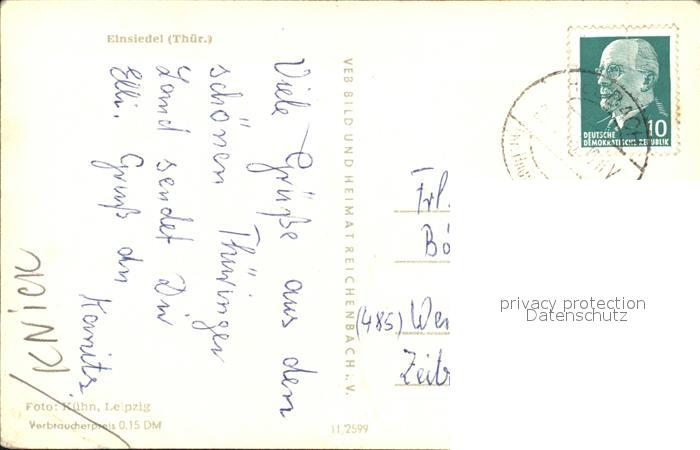 Einsiedel (Thür.)
Viele Grüße aus dem
schönen Thüringer
Land sendet Dir
Elli. Gruß an
/KNICK
Foto: Kühn, Leipzig
Verbraucherpreis 0,15 DM
VEB BILD UND HEIMAT REICHENBACH i. V.
11/2599
DEUTSCHE
DEMOKRATISCHE REPUBLIK
10
Frl.
Bö
(485) Wei
Zeit
privacy protection
Datenschutz